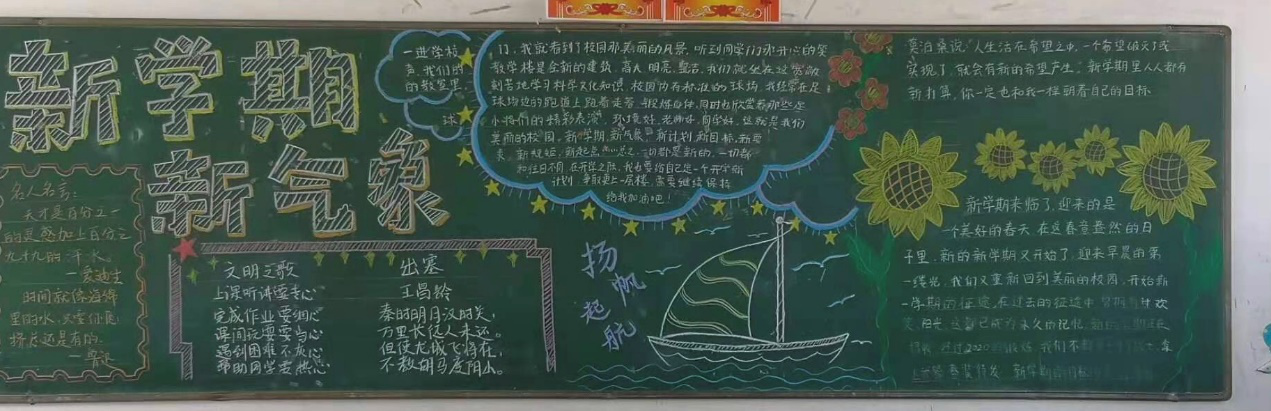 新学期
新气象
名人名言：
天才是百分之一
的灵感加上百分之
九十九的汗水。
—爱迪生
时间就像海绵
里的水，只要
愿还是有的。
文明之歌
上课听讲要专心
完成作业要细心
课间玩耍要当心
遇到困难不灰心
帮助同学要热心
出塞
王昌龄
秦时明月汉时关，
万里长征人未还。
但使龙城飞将在，
不教胡马度阴山。
一进学校
门，我就看到了校园那美丽的风景，听到同学们那开心的笑
声。我们的
教学楼是全新的建筑，高大、明亮、整洁，我们就坐在这宽敞
的教室里，
刻苦地学习科学文化知识。校园内有标准的球场，我经常在是
球场边的跑道上跑着走着，锻炼身体，同时也欣赏着那些
小将们的精彩表演。环境好，老师好，同学好，这就是我们
美丽的校园。新学期，新气象，新计划，新目标，新
新起点，总之，一切都是新的，一切都
和往日不同，在开学之际，我也要给自己定一个开学新
计划，争取更上一层楼，需要继续保持
给我加油吧！
扬帆起航
莫泊桑说：“人生活在希望之中，一个希望破灭了或
实现了，就会有新的希望产生。”新学期里人人都有
新打算，你一定也和我一样朝着自己的目标
新学期来临了，迎来的是
一个美好的春天，在这春意盎然的日
子里，新的新学期又开始了，迎来早晨的第
一缕光，我们又重新回到美丽的校园，开始新
一学期的征途，在过去的征途中
阳光，这都已成为永久的记忆，新的
我们不
新学期